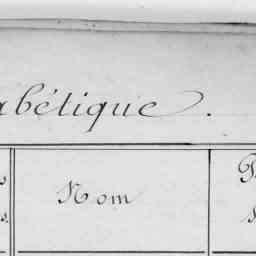 abétique.
Nom